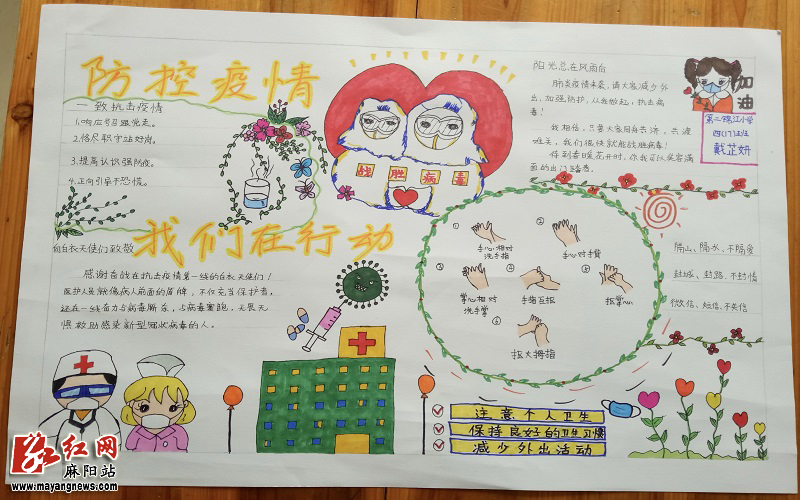 防控疫情
一致抗击疫情
1.响应号召跟党走。
2.恪尽职守站好岗。
3.提高认识强防疫。
4.正向引导不恐慌。
战胜病毒
阳光总在风雨后
肺炎疫情来袭，请大家减少外
出，加强防护，从我做起，抗击病
毒！
我相信，只要大家同舟共济，共渡
难关，我们很快就能战胜病毒！
等到春暖花开时，你我可以笑容满
面的出门踏春。
加油
第二锦江小学
四(17)班
戴芷妍
我们在行动
向白衣天使们致敬
感谢奋战在抗击疫情第一线的白衣天使们！
医护人员就像病人前面的盾牌，不仅充当保护者，
还在一线奋力与病毒厮杀，与病毒赛跑，无畏无
惧救助感染新型冠状病毒的人。
①
手心相对
洗手指
②
手心对手背
③
掌心相对
洗手掌
④
手指互扣
⑤
⑥
抠大拇指
隔山、隔水、不隔爱
封城、封路、不封情
注意个人卫生
保持良好的卫生习惯
减少外出活动
红网
麻阳站
www.mayangnews.com